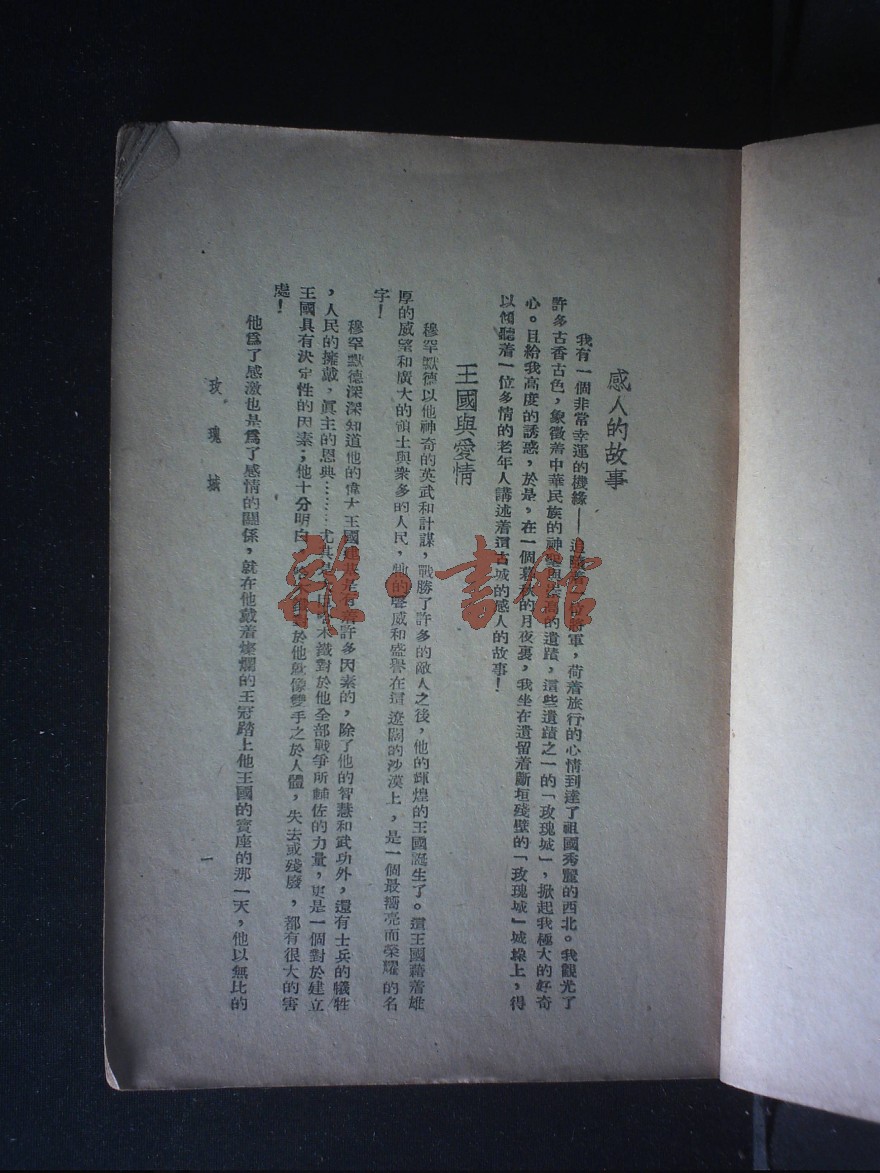 感人的故事
我有一個非常幸運的機緣——追隨着一位將軍,荷着旅行的心情到達了祖國秀麗的西北。我觀光了
許多古香古色,象徵着中華民族的神聖與崇高的遺蹟,這些遺蹟之一的「玫瑰城」,掀起我極大的好奇
心。且給我高度的誘惑,於是,在一個暮秋的月夜裏,我坐在遺留着斷垣殘壁的「玫瑰城」城垛上,得
以傾聽着一位多情的老年人講述着這古城的感人的故事!
王國與愛情
穆罕默德以他神奇的英武和計謀,戰勝了許多的敵人之後,他的輝煌的王國誕生了。這王國藉着雄
厚的威望和廣大的領土與衆多的人民,他的聲威和盛譽在這遼闊的沙漠上,是一個最響亮而榮耀的名
字!
穆罕默德深深知道他的偉大王國建基是有着許多因素的,除了他的智慧和武功外,還有士兵的犧牲
,人民的擁戴,眞主的恩典………尤其是 木識對於他全部戰爭所輔佐的力量,更是一個對於建立
王國具有決定性的因素;他十分明白, 對於他就像雙手之於人體,失去或殘廢,都有很大的害
處!
他爲了感激也是爲了感情的關係,就在他戴着燦爛的王冠踏上他王國的寶座的那一天,他以無比的
玫瑰城
一
雜·書館